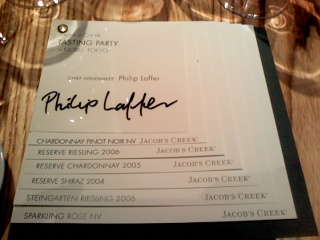 TASTING PARTY
NOBU TOKYO
CHIEF WINEMAKER Philip Laffer
Philip Laffer
CHARDONNAY PINOT NOIR NV JACOB'S CREEK®
RESERVE RIESLING 2006 JACOB'S CREEK®
RESERVE CHARDONNAY 2005 JACOB'S CREEK®
RESERVE SHIRAZ 2004 JACOB'S CREEK®
STEINGARTEN RIESLING 2006 JACOB'S CREEK®
SPARKLING ROSE NV JACOB'S CREEK®